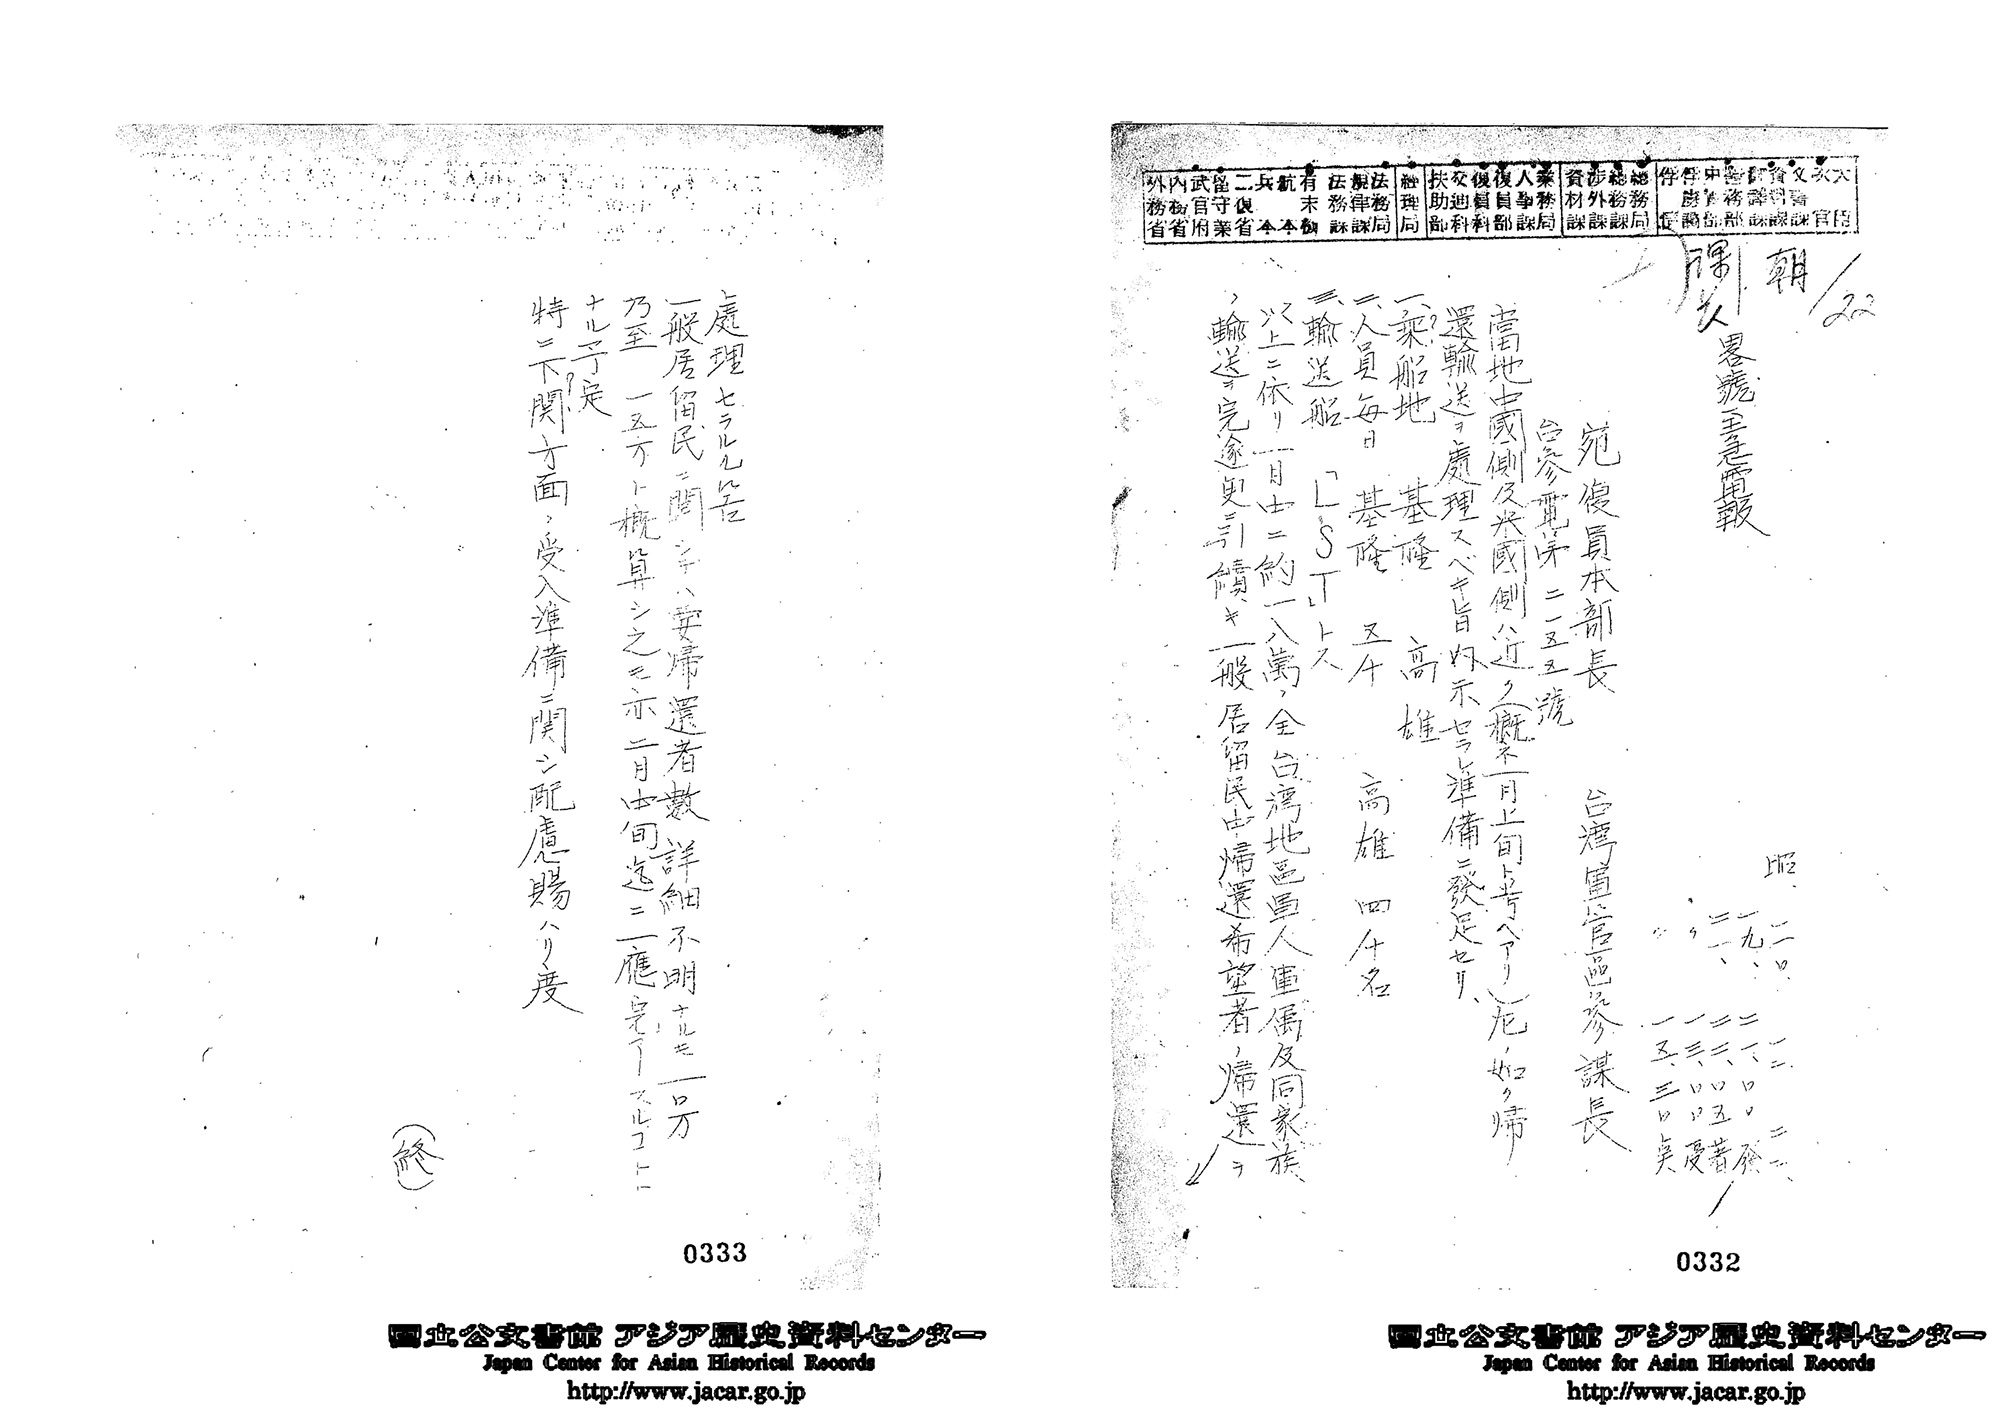 総務局
総務課
渉外課
資材課
業務局
人事課
復員部
復員科
交通科
扶助部
経理局
法務局
規律課
法務課
有末機
二復省
留守業
武官府
内務省
外務省
朝
1/22
畧號至急電報
昭、二〇、一二、二二、
一九、二一、〇〇 發
二一、二二、〇五 著
〃 一三、〇〇 受
〃 一五、三〇
宛 復員本部長 台湾軍官區參謀長
台參電第二一五五號
當地中國側及米國側ハ近ク(概ネ一月上旬ト考ヘアリ)左ノ如ク帰
還輸送ヲ處理スベキ旨内示セラレ準備ニ發足セリ、
一、乘船地 基隆 高雄
二、人員毎日 基隆 五千 高雄 四千名
三、輸送船 「LST」トス
以上ニ依リ一月中ニ約一八萬ノ全台湾地區軍人軍属及同家族
ノ輸送ヲ完遂更ニ引續キ一般居留民中帰還希望者ノ帰還ヲ
0332
處理セラルル筈
一般居留民ニ関シテハ要帰還者數詳細不明ナルモ一〇万
乃至一五万ト概算シ之モ亦二月中旬迄ニ一應完了スルコトト
ナル予定
特ニ下関方面ノ受入準備ニ関シ配慮賜ハリ度
(終)
0333
國立公文書館 アジア歴史資料センター
Japan Center for Asian Historical Records
http://www.jacar.go.jp
國立公文書館 アジア歴史資料センター
Japan Center for Asian Historical Records
http://www.jacar.go.jp